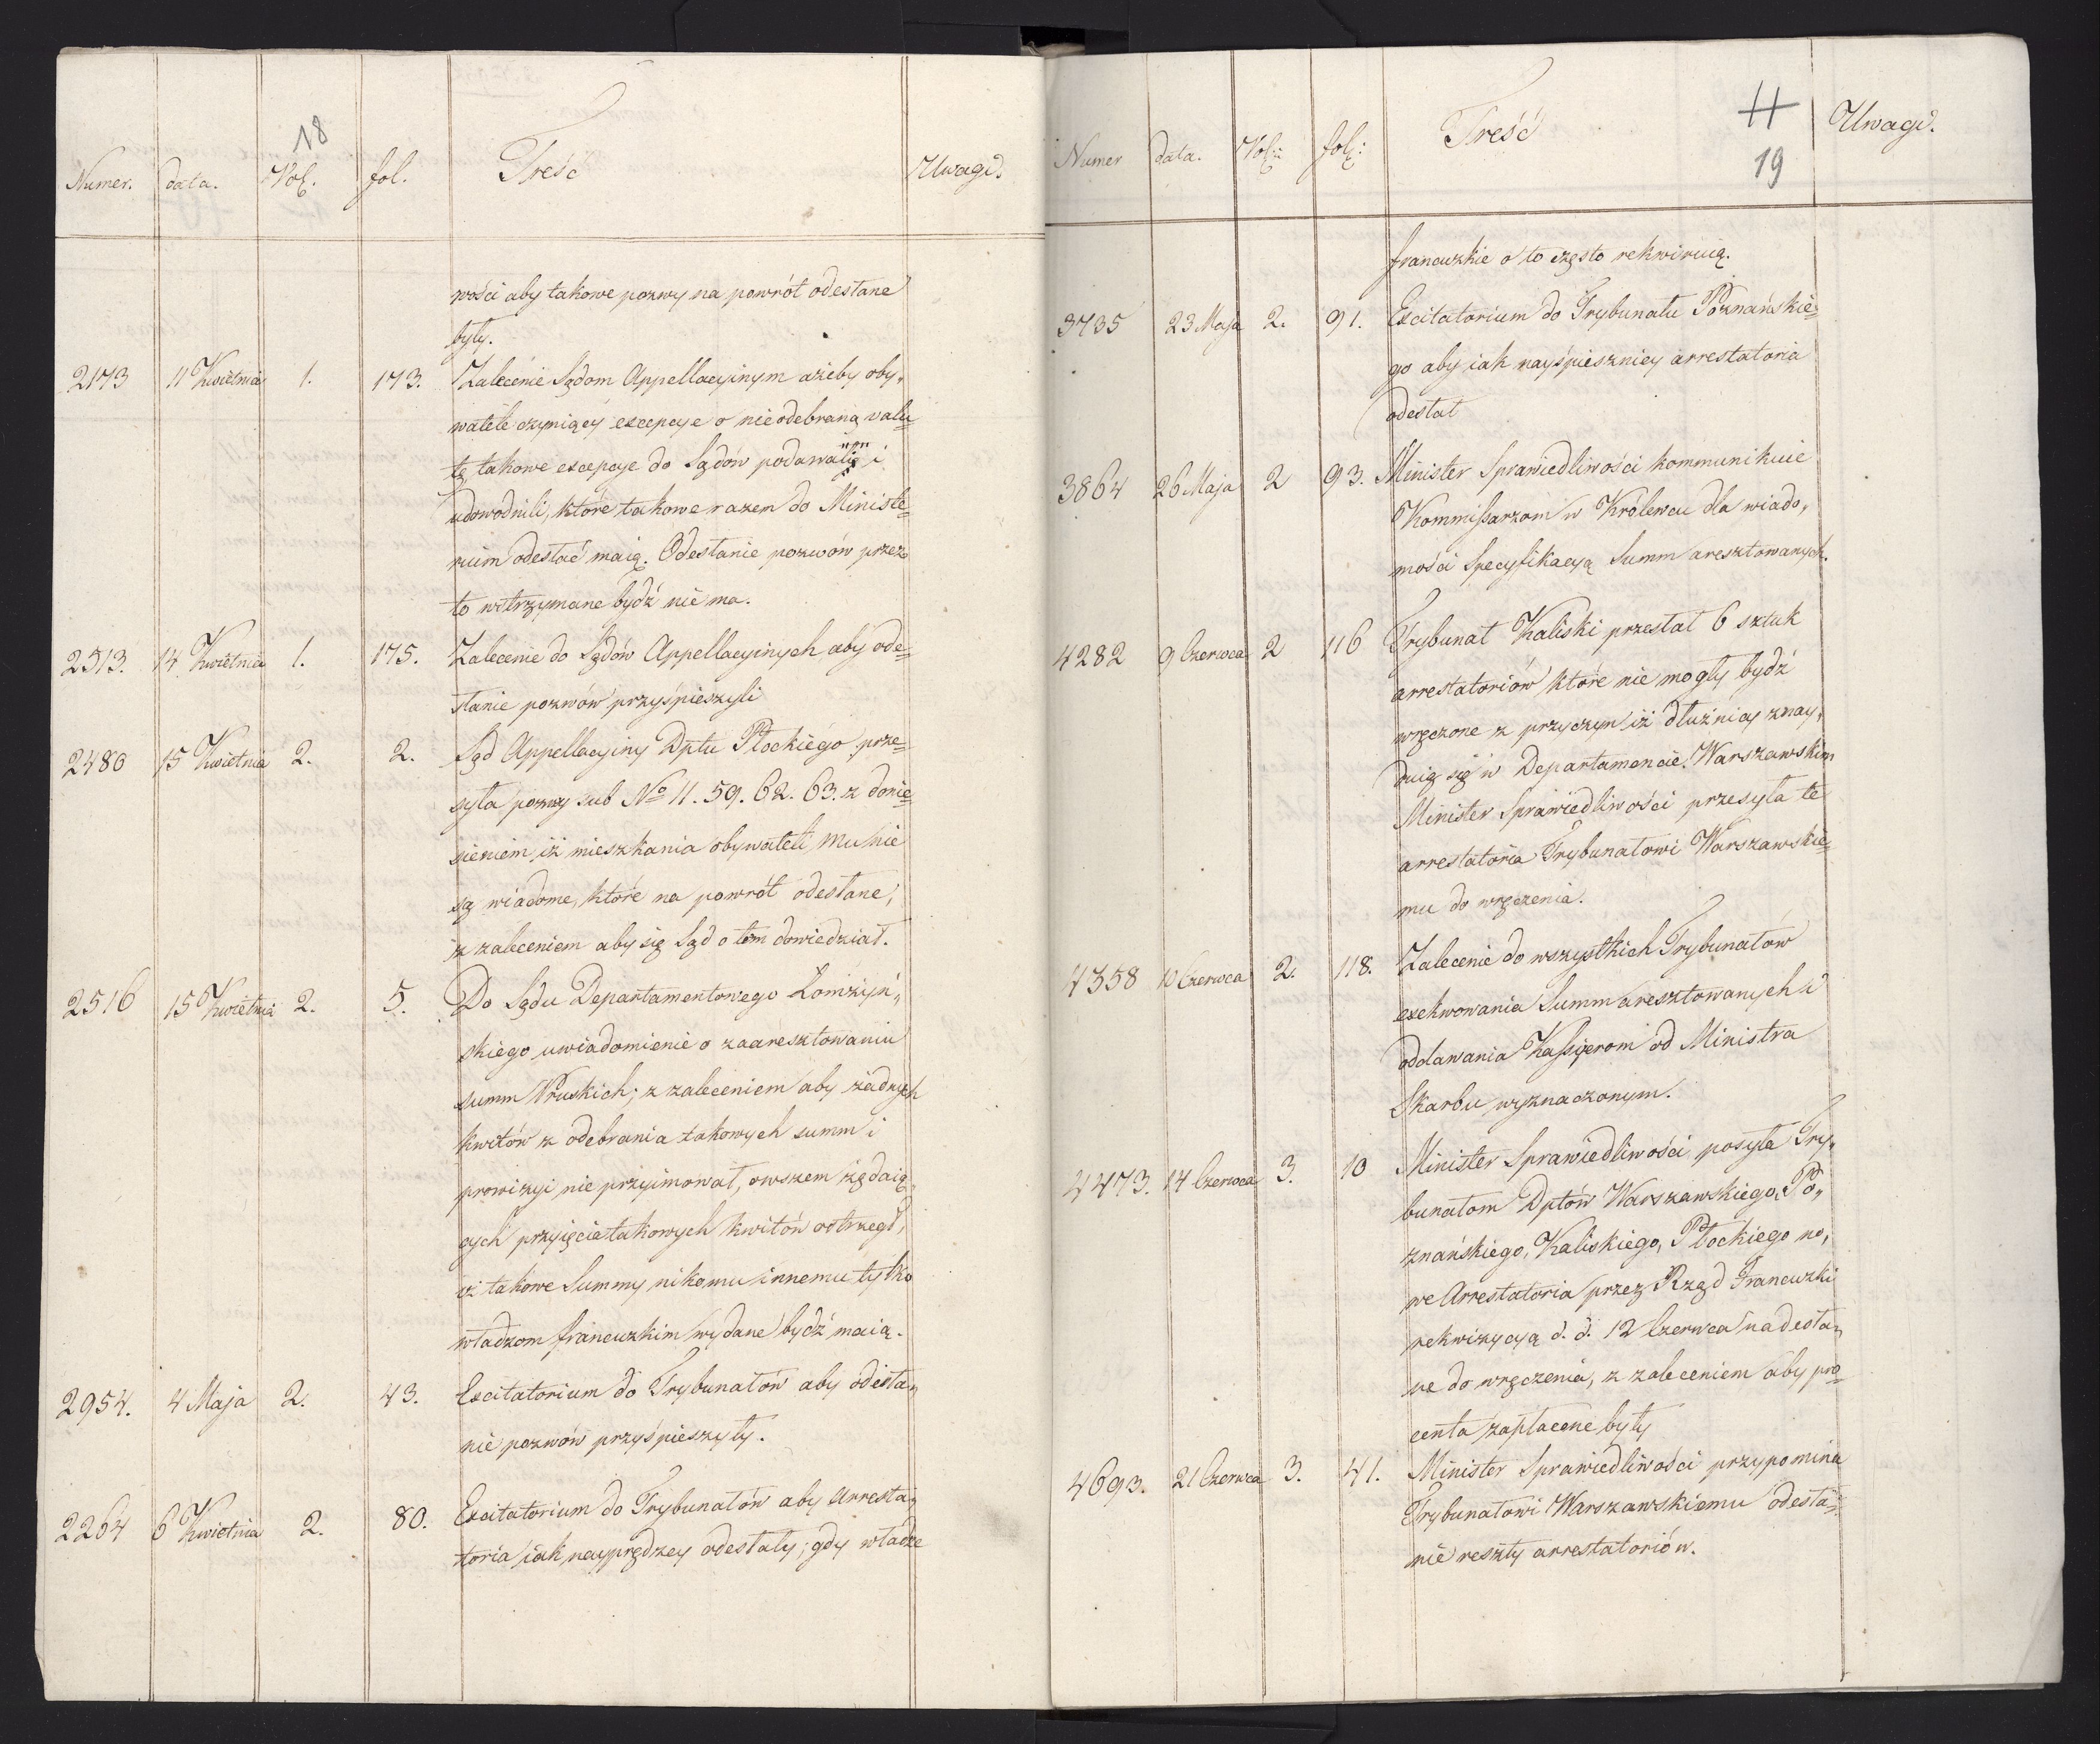 18
Numer. data. Vol. fol. Treść Uwagi.
wości aby takowe pozwy na powrót odesłane
były.
2173 11 Kwietnia 1. 173. Zalecenie Sądom Appellacyinym ażeby oby„
watele czyniący excepcye o nieodebraną valu=
tę takowe excepcye do Sądów podawali i
udowodnili, które takowe razem do Ministe=
rium odesłać maią. Odesłanie pozwów przez
to wstrzymane bydź nie ma.
2513. 14 Kwietnia 1. 175. Zalecenie do Sądów Appellacyinych aby ode=
słanie pozwów przyśpieszyli
2480 15 Kwietnia 2. 2. Sąd Appellacyiny Dptu Płockiego prze=
syła pozwy sub No 11. 59. 62. 63. z donie=
sieniem iż mieszkania obywateli mu nie
są wiadome, które na powrót odesłane,
z zaleceniem aby się Sąd o tem dowiedział.
2516 15 Kwietnia 2. 5. Do Sądu Departamentowego Łomżyń„
skiego uwiadomienie o zaaresztowaniu
summ Pruskich; z zaleceniem aby żadnych
kwitów z odebrania takowych summ i
prowizyi nie przyimował, owszem żądaią„
cych przyięcia takowych kwitów ostrzegł,
iż takowe Summy nikomu innemu tylko
władzom francuzkim wydane bydź maią.
2954. 4 Maja 2. 43. Excitatorium do Trybunałów aby odesła„
nie pozwów przyśpieszyły.
2264 6 Kwietnia 2. 80. Excitatorium do Trybunałów aby Arresta„
toria iak nayprędzey odesłały; gdy władze
11
19
Numer data. Vol: fol: Treść Uwagi.
francuzkie o to często rekwiruią.
3735 23 Maja 2. 91. Excitatorium do Trybunału Poznańskie=
go aby iak nayśpieszniey arrestatoria
odesłał
3864 26 Maja 2 93. Minister Sprawiedliwości kommunikuie
Kommissarzom w Królewcu dla wiado„
mości Specyfikacyą Summ aresztowanych.
4282 9 Czerwca 2 116 Trybunał Kaliski przesłał 6 sztuk
arrestatoriów które nie mogły bydź
wręczone z przyczyn iż dłużnicy znay„
duią się w Departamencie Warszawskim
Minister Sprawiedliwości przesyła te
arrestatoria Trybunałowi Warszawskie=
mu do wręczenia.
4358 10 Czerwca 2. 118. Zalecenie do wszystkich Trybunałów
exekwowania Summ aresztowanych i
oddawania Kassyerom od Ministra
Skarbu wyznaczonym.
4473. 14 Czerwca 3. 10 Minister Sprawiedliwości posyła Try„
bunałom Dptów Warszawskiego, Po„
znańskiego, Kaliskiego, Płockiego no„
we Arrestatoria przez Rząd Francuzki
rekwizycyą d. d. 12 Czerwca nadesła„
ne do wręczenia, z zaleceniem aby pro=
centa zapłacone były
4693. 21 Czerwca 3. 41. Minister Sprawiedliwości przypomina
Trybunałowi Warszawskiemu odesła=
nie reszty arrestatoriów.